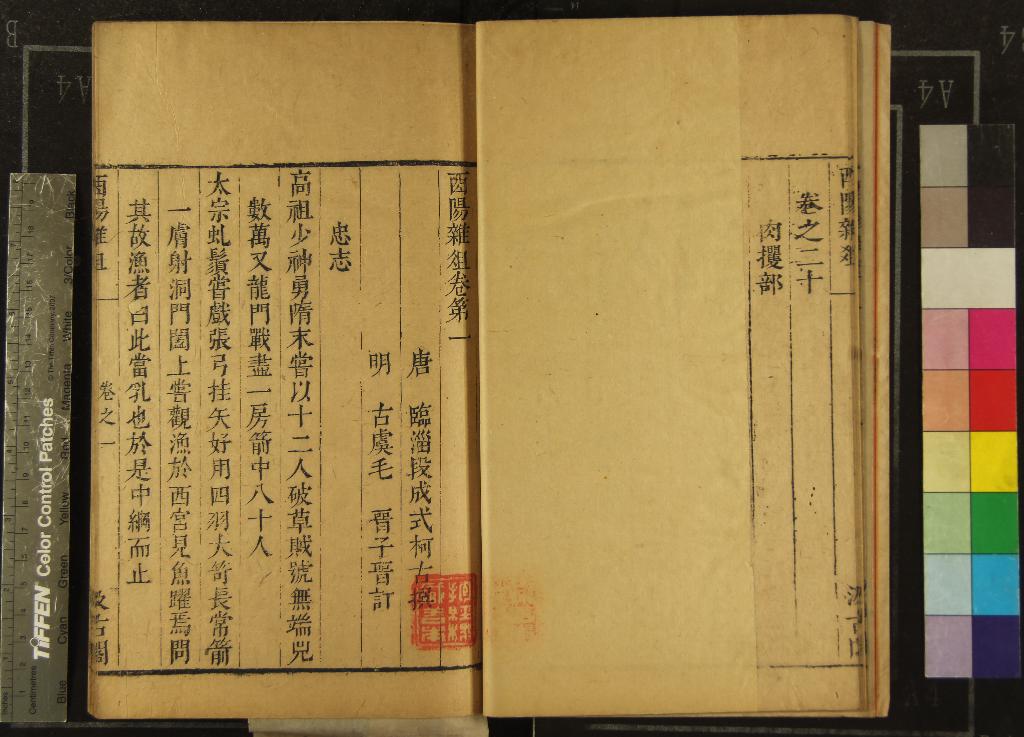 酉陽雜俎
卷之二十
肉攫部
酉陽雜俎卷第一
唐 臨淄段成式柯古撰
明 古虞毛 晉子晉訂
忠志
高祖少神勇隋末嘗以十二人破草賊號無端兒
數萬又龍門戰盡一房箭中八十人
太宗虬鬚嘗戲張弓挂矢好用四羽大笴長常箭
一膚射洞門闔上嘗觀漁於西宮見魚躍焉問
其故漁者曰此當乳也於是中網而止
酉陽雜俎
卷之一
汲古閣
TIFFEN Color Control Patches
© The Tiffen Company, 2007
Blue
Cyan
Green
Yellow
Red
Magenta
White
3/Color
Black
Centimetres
Inches
A4
A4
B